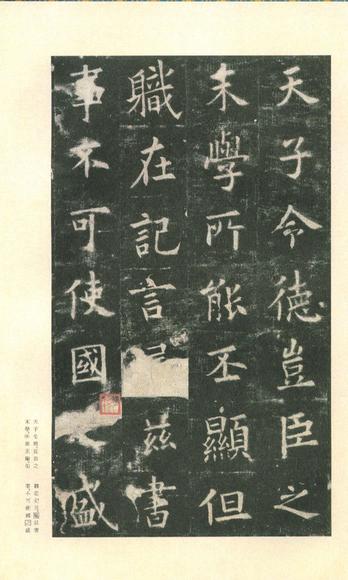 天子令德豈臣之
末學所能丕顯但
職在記言茲書
事不可使國盛
天子令德豈臣之
末學所能丕顯但
職在記言屬茲書
事不可使國之盛